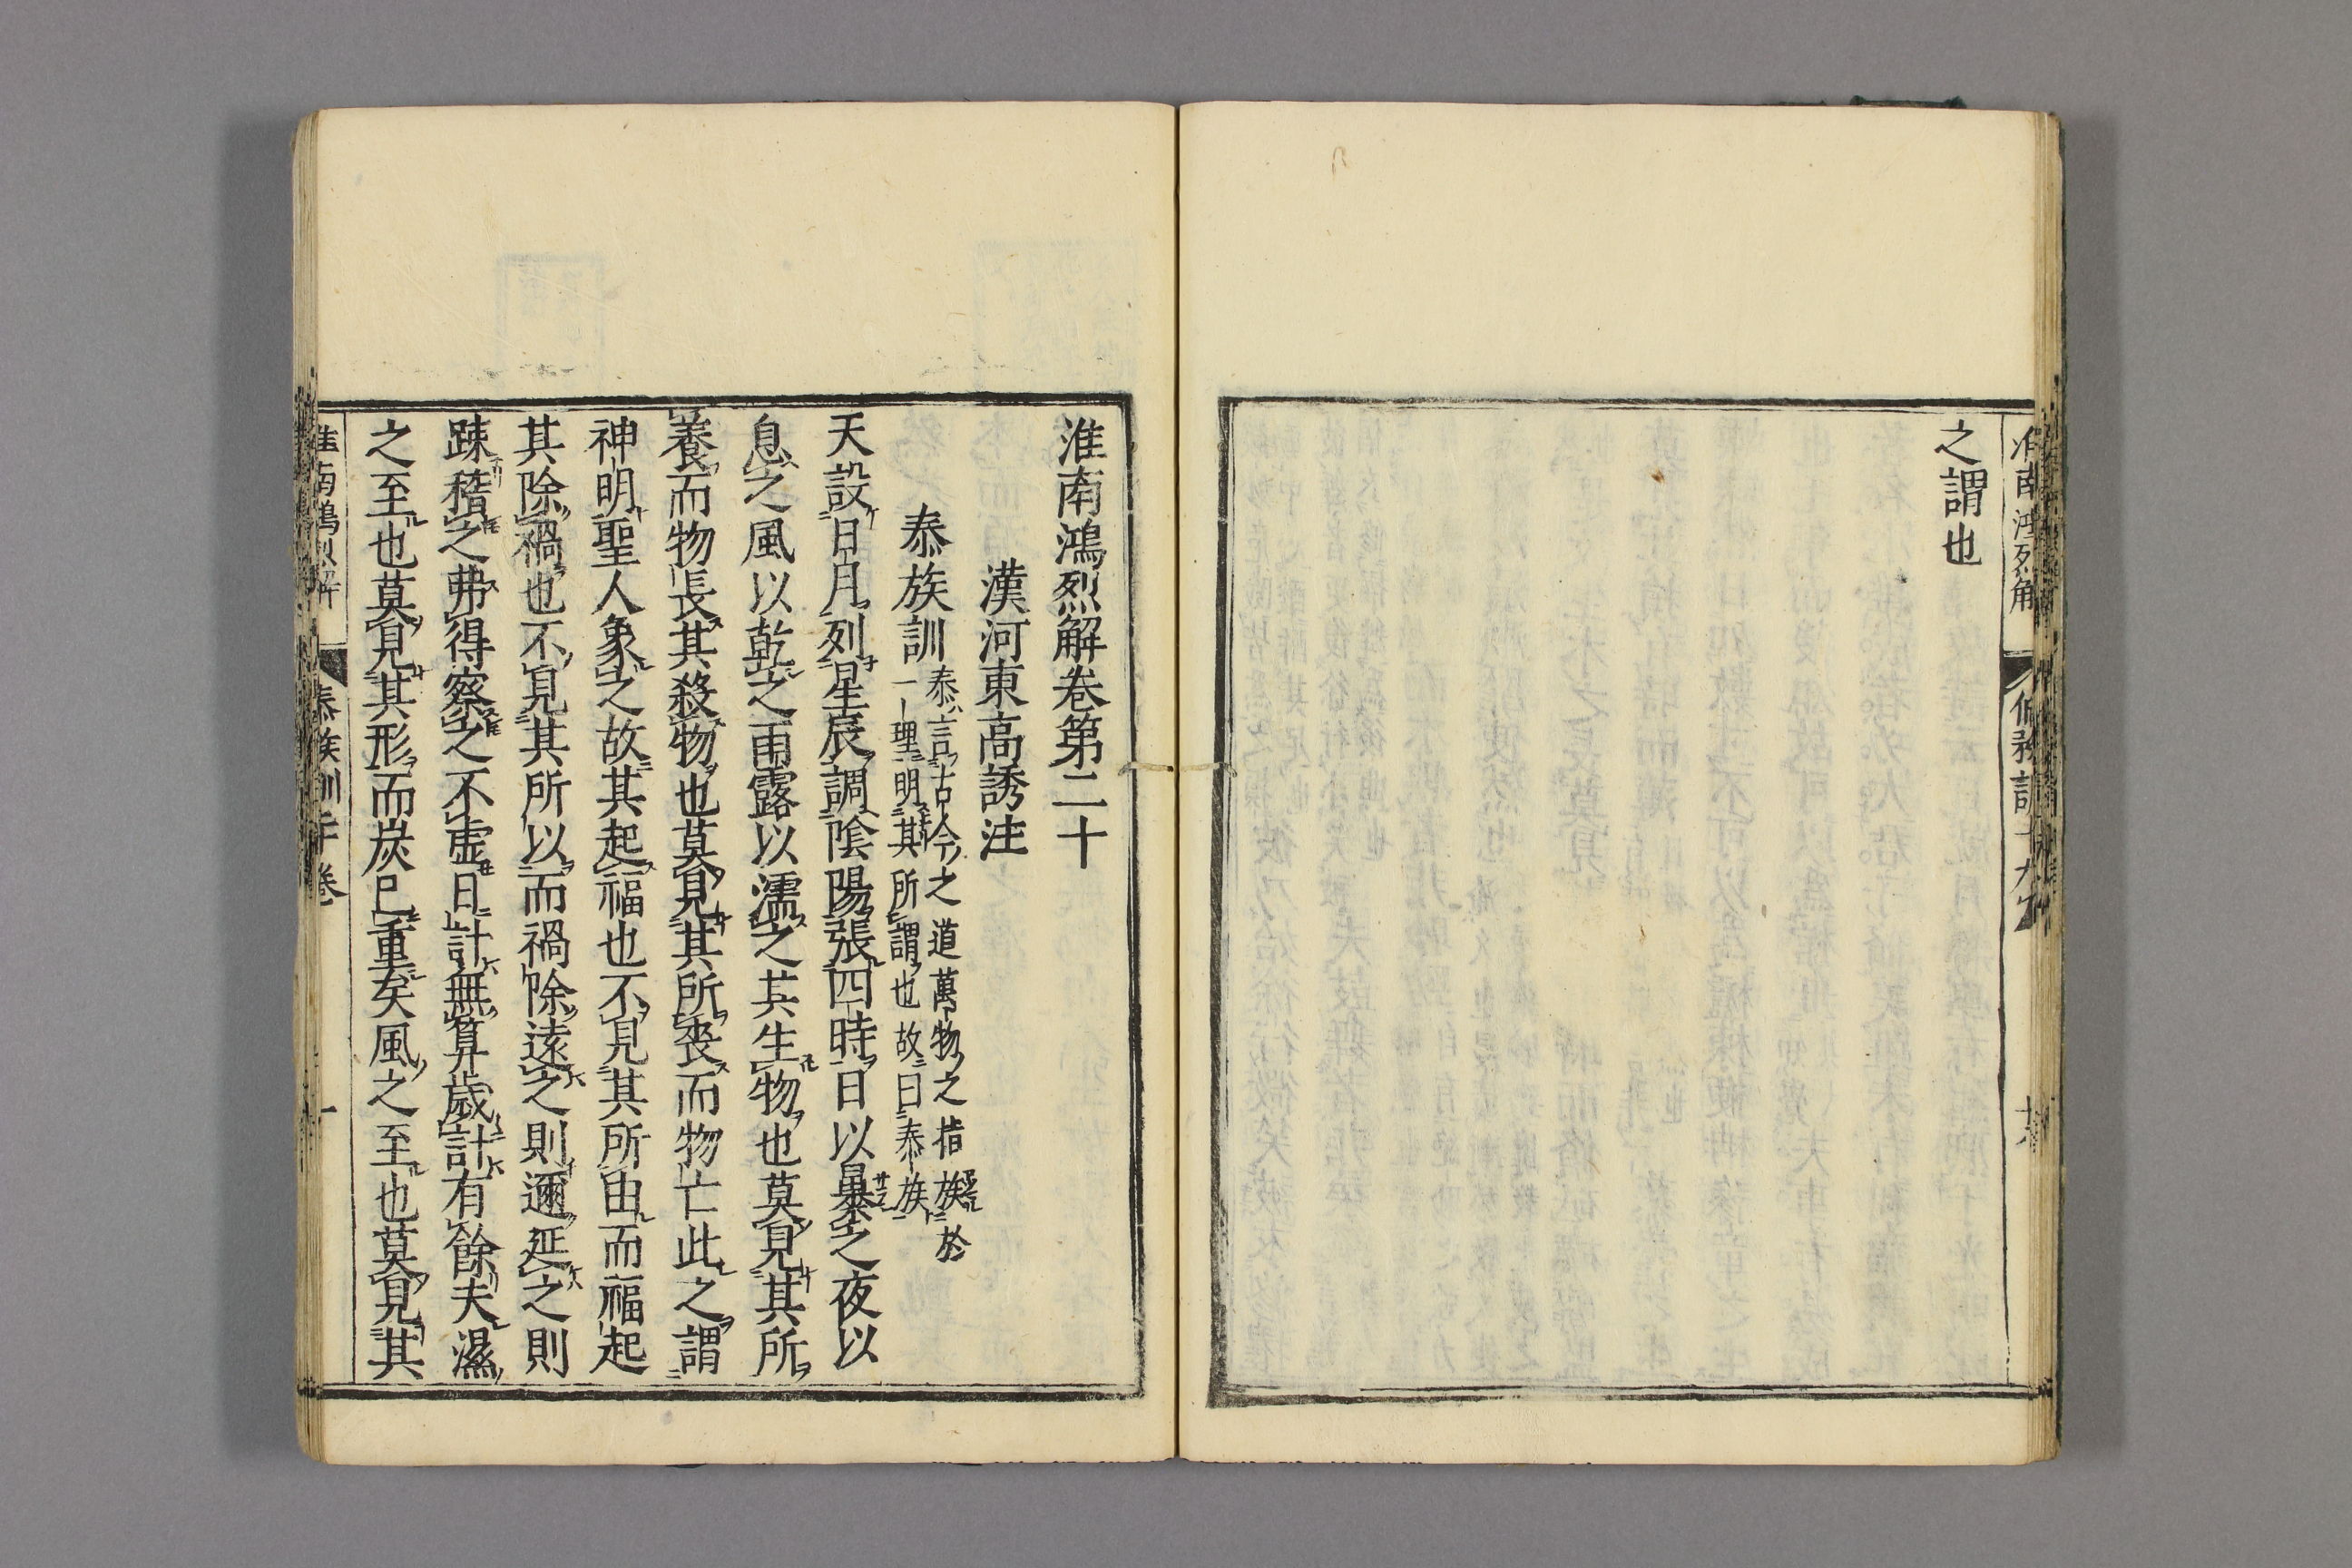 之謂也
淮南鴻烈解卷第二十
漢河東高誘注
泰族訓
泰言古今之道萬物之指族於
一理明其所謂也故曰泰族
天設日月列星辰調陰陽張四時日以暴之夜以
息之風以乾之雨露以濡之其生物也莫見其所
養而物長其殺物也莫見其所喪而物亡此之謂
神明聖人象之故其起福也不見其所由而福起
其除禍也不見其所以而禍除遠之則邇延之則
踈稽之弗得察之不虛日計無算歲計有餘夫濕
之至也莫見其形而炭已重矣風之至也莫見其
泰族訓二十卷